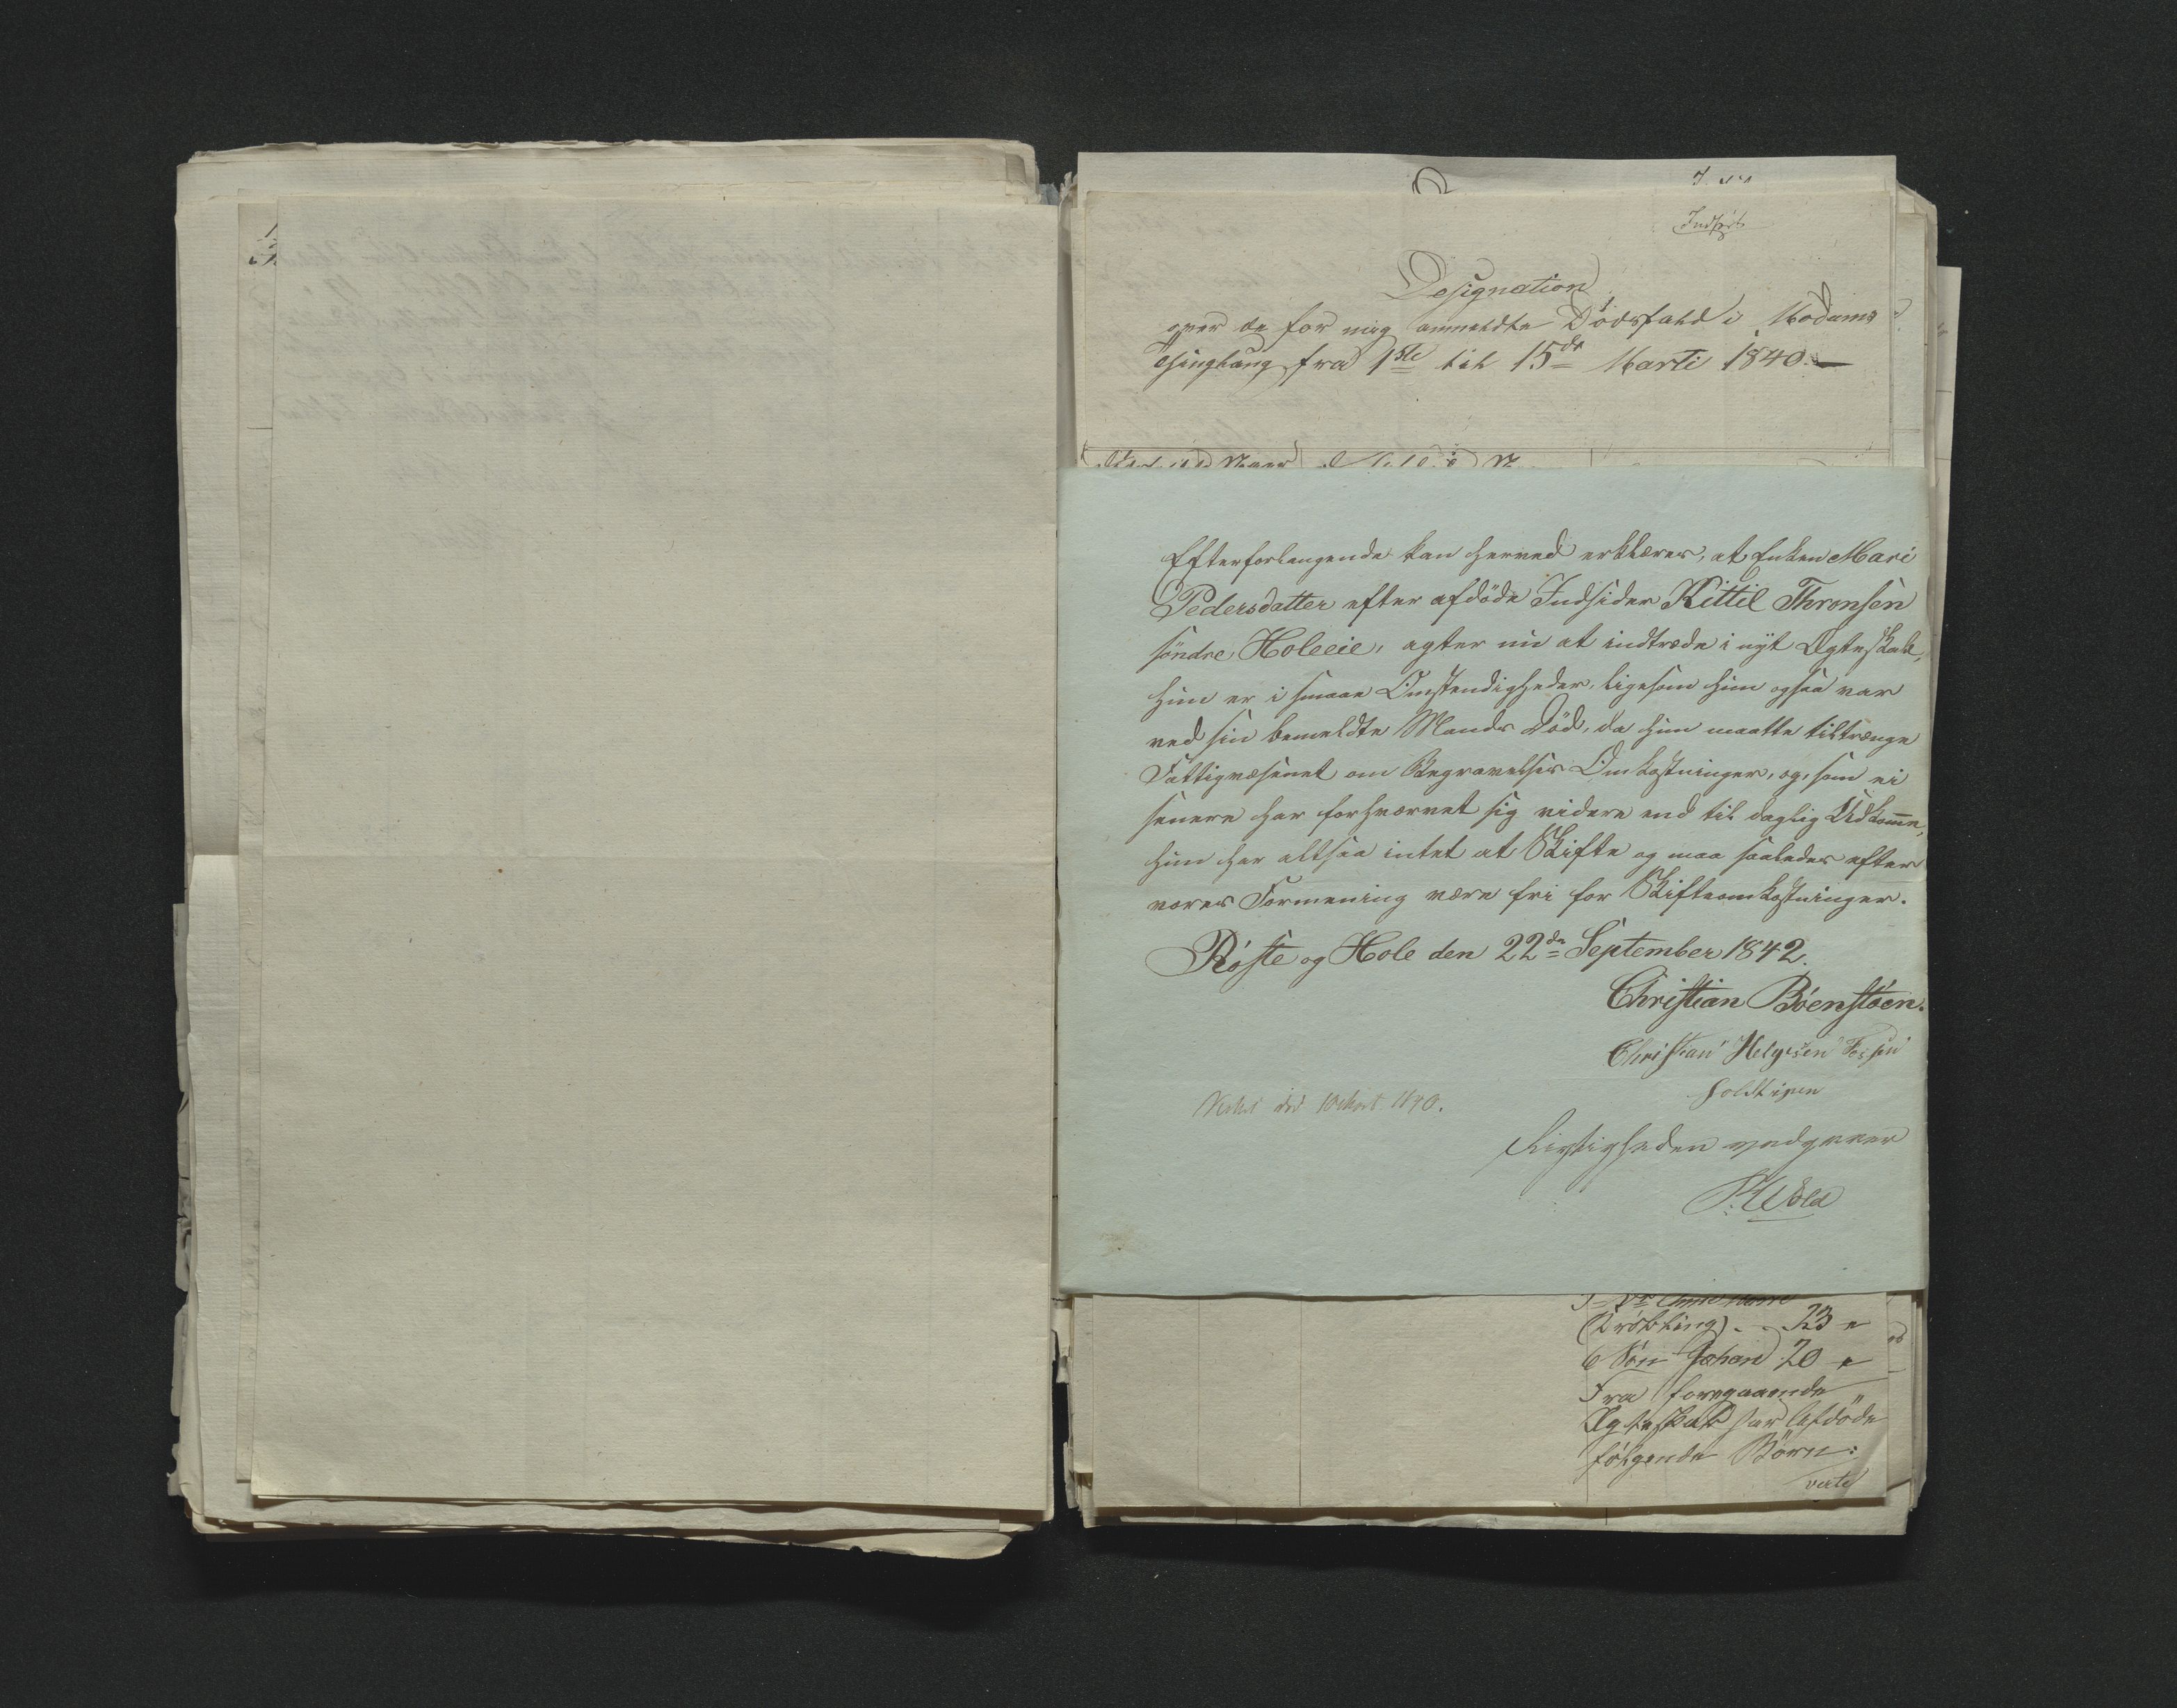 Indført
Designation
over de for mig anmeldte Dødsfald i Modums
Thinglaug fra 1ste til 15de Marti 1840.—
Efterforlangende kan herved erklæres, at Enken Mari
Pedersdatter efter afdöde Indsider Kittil Thronsen
söndre Holeeie, agter nu at indtræde i nyt Ægteskab,
hun er i smaae Omstendigheder, ligesom hun ogsaa var
ved sin bemeldte Mands Död, da hun maatte tiltrænge
Fattigvæsenet om Begravelses Omkostninger, og, som ei
senere har forhværvet sig videre end til daglig Udkomme,
hun har altsaa intet at Skifte og maa saaledes efter
vores Formening være fri for Skifteomkostninger.
Röste og Hole den 22de September 1842.
Christian Böenstöen.
Christian Helgesen
1840.
Rigtigheden vedgaaer
Wold
(Drøbling) . . 23 "
6 Søn Johan 20 "
Fra foregaaende
Ægteskab har Afdöde
følgende Børn:
verte